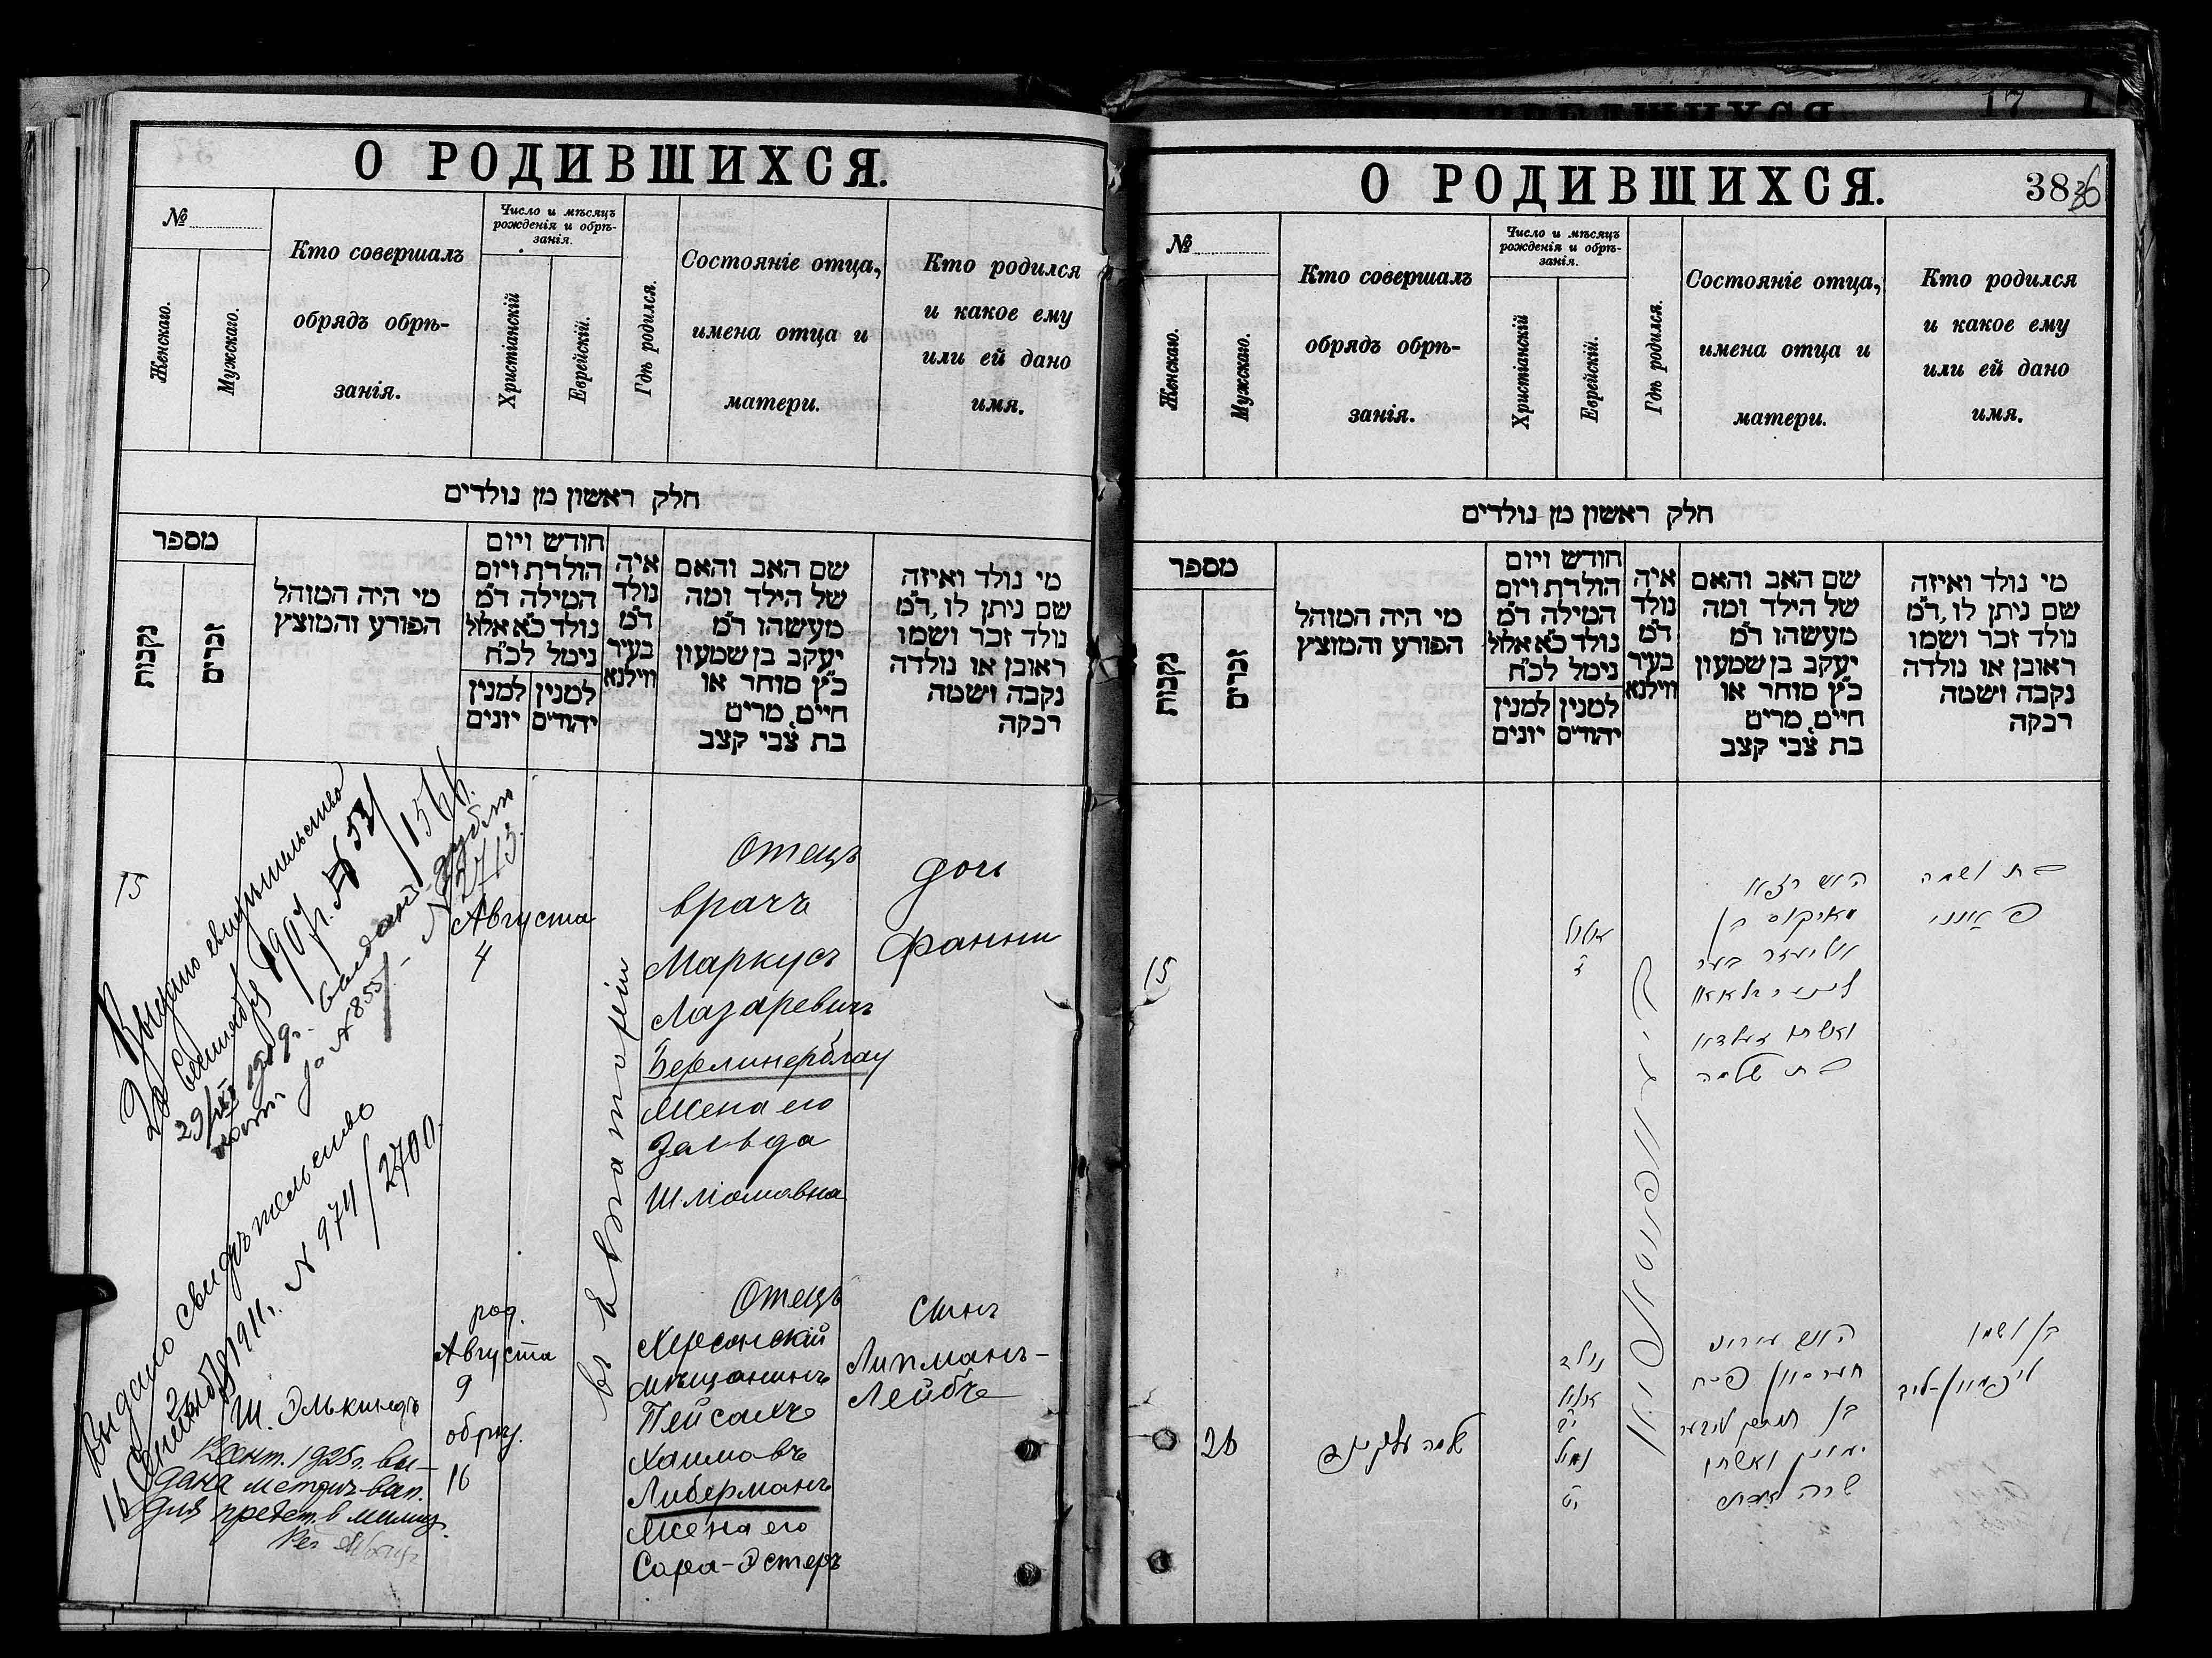 О РОДИВШИХСЯ.
№
Женскаго.
Мужскаго.
Кто совершалъ
обрядъ обрѣ-
занія.
Число и мѣсяцъ
рожденія и обрѣ-
занія.
Христіанскій
Еврейскій.
Гдѣ родился.
Состояніе отца,
имена отца и
матери.
Кто родился
и какое ему
или ей дано
имя.
חלק ראשון מן נולדים
מספר
נקבות
זכרים
מי היה המוהל
הפורע והמוצץ
חודש ויום
הולדת ויום
המילה ד״מ
נולד כ״א אלול
נימל לכ״ח
למנין יהודים
למנין יונים
איה
נולד
ד״מ
בעיר
ווילנא
שם האב והאם
של הילד ומה
מעשהו ד״מ
יעקב בן שמעון
כ״ץ סוחר או
חייט, מרים
בת צבי קצב
מי נולד ואיזה
שם ניתן לו, ד״מ
נולד זכר ושמו
ראובן או נולדה
נקבה ושמה
רבקה
15
Выдано свидѣтельство
Сентября 1907 г. № 531/1566.
29/IX 1909г. выдан дубли
за № 855/ № 2713.
Августа
4
въ Евпаторіи
Отецъ
врачъ
Маркусъ
Лазаревичъ
Берлинерблау
Жена его
Зельда
Шліомовна
дочь
Фанни
Выдано свидѣтельство
16 Сентября 1911г. № 974/2700.
Ш. Элькиндъ
Сент. 1925г. вы-
дана метрич. вып.
для предст. в милиц.
род.
Августа
9
обрѣз.
16
Отецъ
Херсонскій
мѣщанинъ
Пейсахъ
Хаимовъ
Либерманъ
Жена его
Сара-Эстеръ
Сынъ
Липманъ-
Лейбъ
О РОДИВШИХСЯ.
38 36
№
Женскаго.
Мужскаго.
Кто совершалъ
обрядъ обрѣ-
занія.
Число и мѣсяцъ
рожденія и обрѣ-
занія.
Христіанскій
Еврейскій.
Гдѣ родился.
Состояніе отца,
имена отца и
матери.
Кто родился
и какое ему
или ей дано
имя.
חלק ראשון מן נולדים
מספר
נקבות
זכרים
מי היה המוהל
הפורע והמוצץ
חודש ויום
הולדת ויום
המילה ד״מ
נולד כ״א אלול
נימל לכ״ח
למנין יהודים
למנין יונים
איה
נולד
ד״מ
בעיר
ווילנא
שם האב והאם
של הילד ומה
מעשהו ד״מ
יעקב בן שמעון
כ״ץ סוחר או
חייט, מרים
בת צבי קצב
מי נולד ואיזה
שם ניתן לו, ד״מ
נולד זכר ושמו
ראובן או נולדה
נקבה ושמה
רבקה
15
אלול
האיש רופא
מארקוס בן
אליעזר
ואשתו זעלדא
בת שלמה
בת ושמה
פאנני
26
שלמה עלקינד
נולד
אלול
נמול
האיש עירוני
חערסאן פסח
בן חיים ליבער
מאן ואשתו
שרה אסתר
בן ושמו
ליפמאן-לייב
17